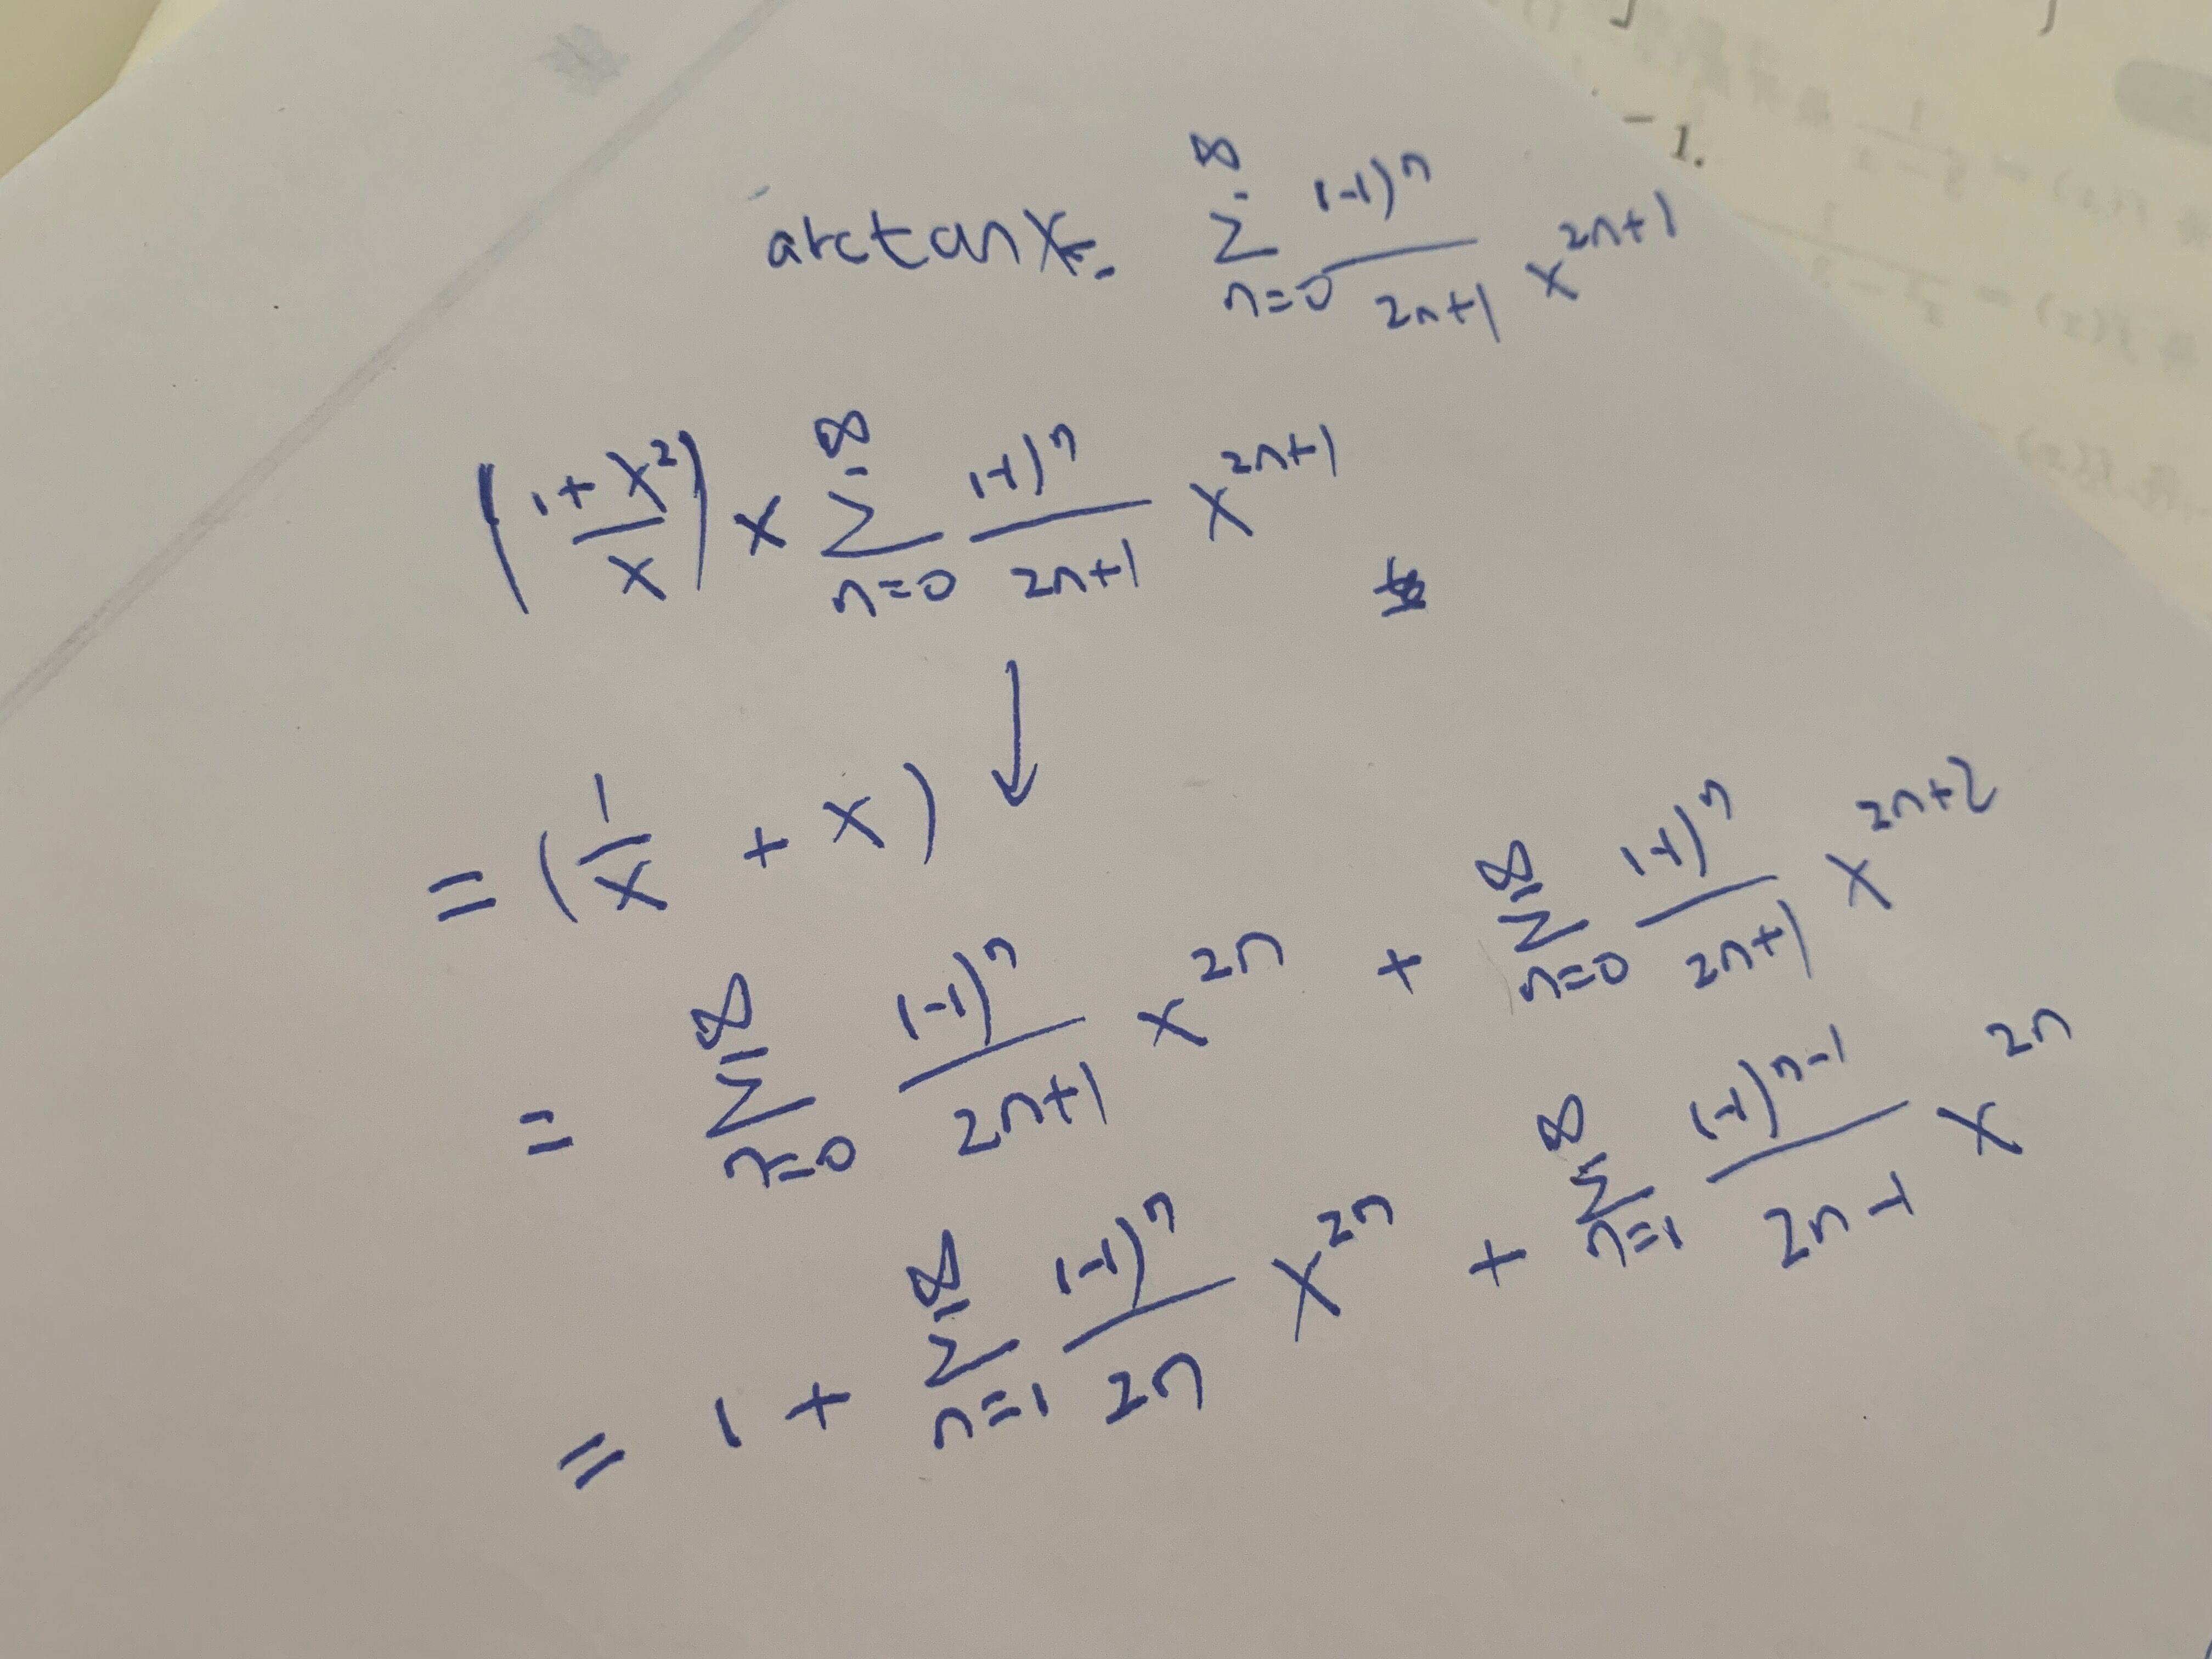 arctan x = \sum_{n=0}^{\infty} \frac{(-1)^n}{2n+1} x^{2n+1}
-1.
\left(\frac{1+x^2}{x}\right) \times \sum_{n=0}^{\infty} \frac{(-1)^n}{2n+1} x^{2n+1}
↓
= \left(\frac{1}{x} + x\right)
= \sum_{n=0}^{\infty} \frac{(-1)^n}{2n+1} x^{2n} + \sum_{n=0}^{\infty} \frac{(-1)^n}{2n+1} x^{2n+2}
= 1 + \sum_{n=1}^{\infty} \frac{(-1)^n}{2n} x^{2n} + \sum_{n=1}^{\infty} \frac{(-1)^{n-1}}{2n-1} x^{2n}